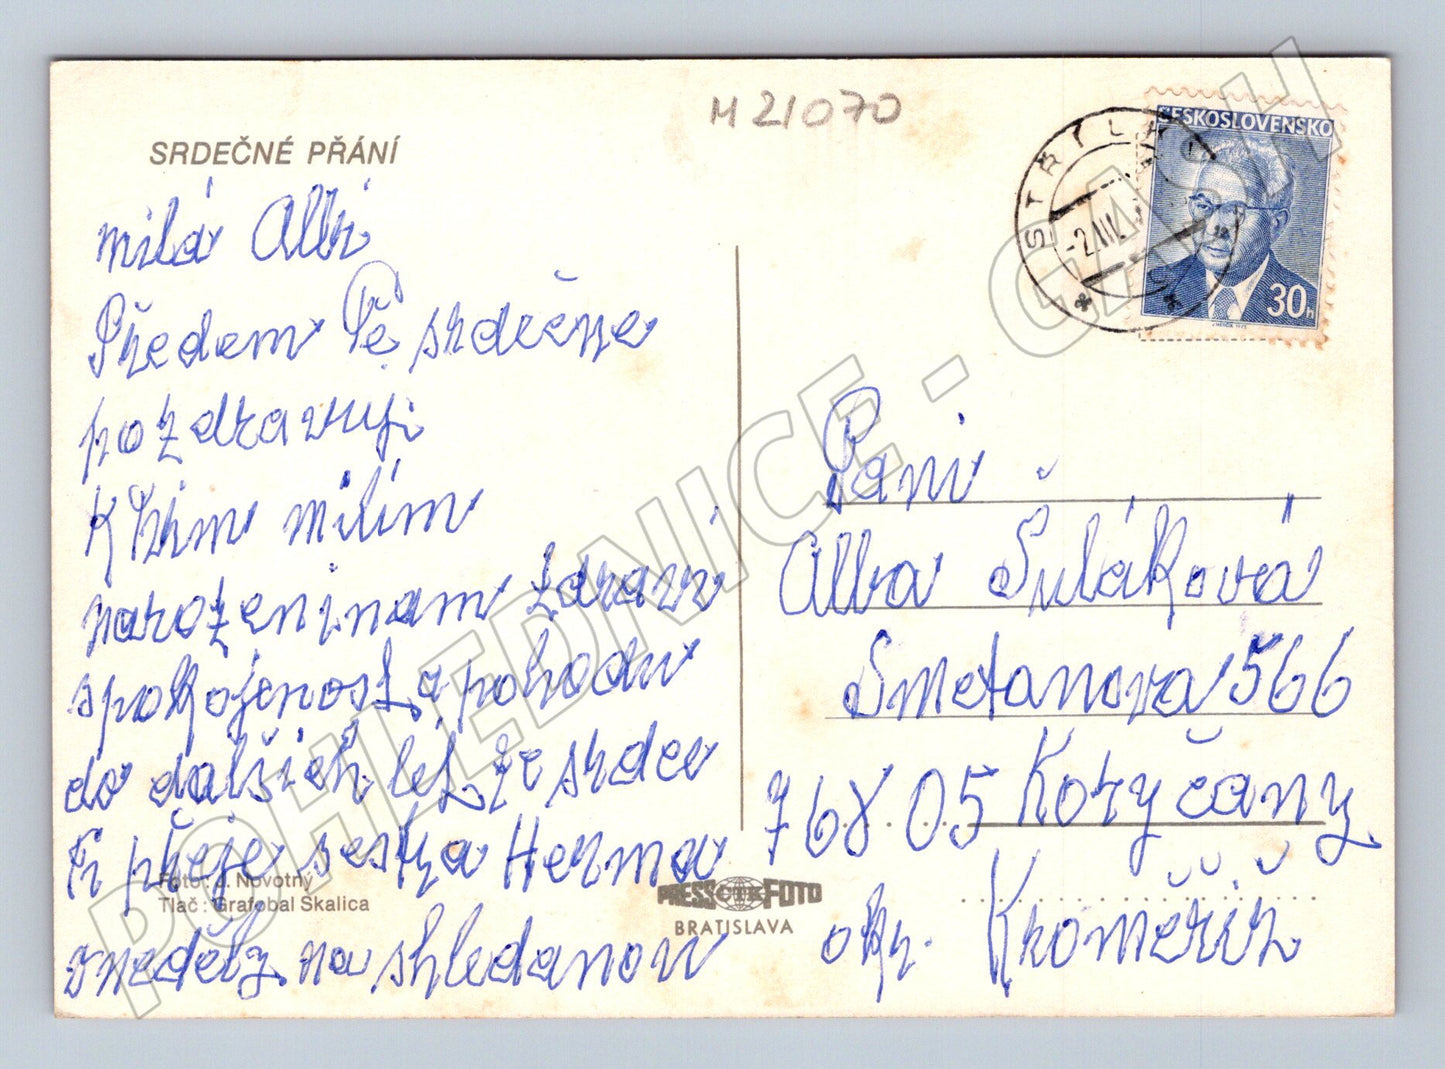 M 21070
SRDEČNÉ PŘÁNÍ
milá Albi
Předem Tě srdečne
pozdravuji
K Tvím milím
narozeninam zdraví
spokojenost a pohodu
do dalšich let ze srdce
ti přeje sestra Herma
v neděly na shledanou
Foto: J. Novotný
Tlač: Grafobal Skalica
PRESS ČTK FOTO
BRATISLAVA
STŘÍLKY
-2.III.
ČESKOSLOVENSKO
30h
Paní
Alba Šuláková
Smetanova 566
768 05 Koryčany
okr. Kroměříž
POHLEDNICE - GASH